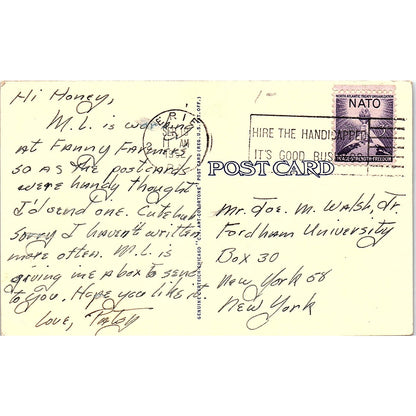 Hi Honey,
M.L. is working
at Fanny Farmers
so as the postcards
were handy thought
I'd send one. Cute huh
sorry I haven't written
more often. M.L. is
giving me a box to send
to you. Hope you like it.
Love, Patsy
GENUINE CURTEICH-CHICAGO "C.T. ART-COLORTONE" POST CARD (REG. U.S. PAT. OFF.)
ERIE
AM
HIRE THE HANDICAPPED
IT'S GOOD BUS
NORTH ATLANTIC TREATY ORGANIZATION
NATO
PEACE-STRENGTH-FREEDOM
POST CARD
Mr. Joe. M. Walsh, Jr.
Fordham University
Box 30
New York 58
New York